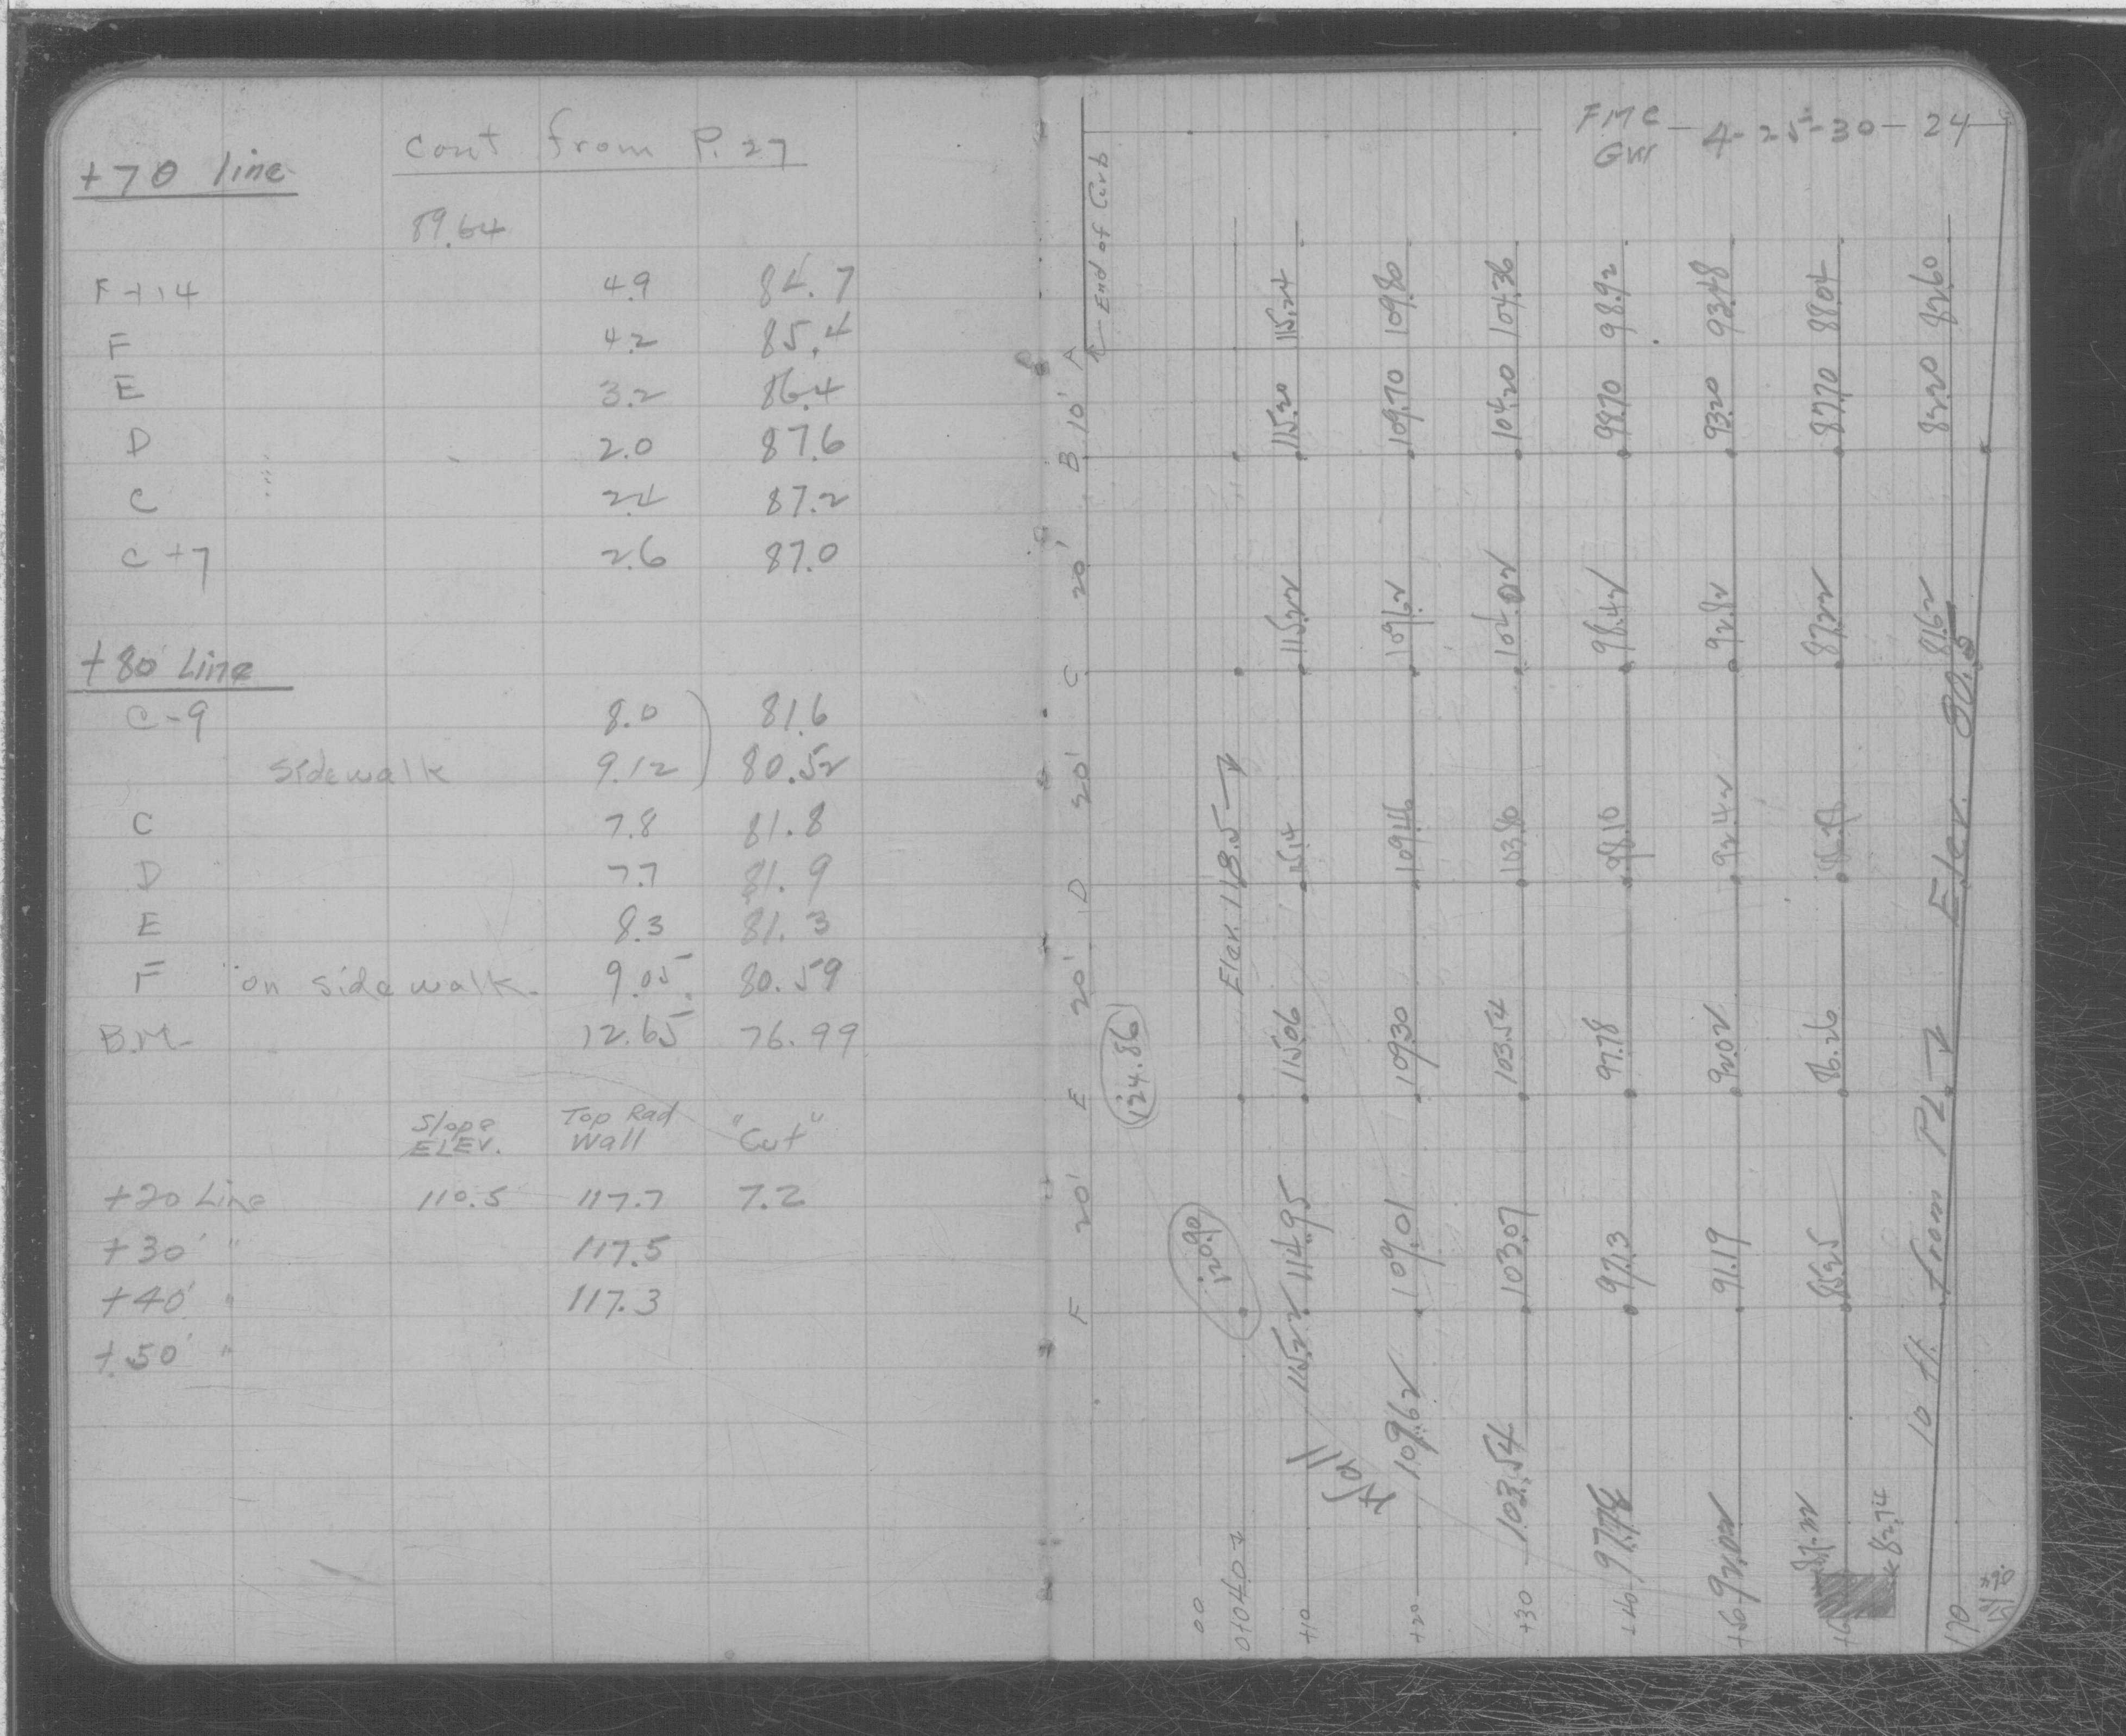 Cont from P. 27
+70 line
89.64
F+14 4.9 84.7
F 4.2 85.4
E 3.2 86.4
D 2.0 87.6
C 2.4 87.2
C+7 2.6 87.0
+80 Line
C-9 8.0 81.6
Sidewalk 9.12 80.52
C 7.8 81.8
D 7.7 81.9
E 8.3 81.3
F on sidewalk. 9.05 80.59
B.M. 12.65 76.99
Slope ELEV. Top Rad Wall "Cut"
+20 Line 110.5 117.7 7.2
+30 " 117.5
+40 " 117.3
+50 "
FMC 4-25-30 24
GW
End of Curb
F 20' E 20' D 20' C 20' B 10' A
124.86
00
0+04.07 120.90 Elev. 118.5
+10 115.22 114.95 115.06 115.14 115.22 115.20 115.24
+20 109.62 109.01 109.30 109.46 109.62 109.70 109.80
+30 103.54 103.07 103.54 103.80 104.02 104.20 104.36
+40 97.78 97.13 97.78 98.10 98.42 98.70 98.92
92.02 91.19 92.02 92.42 92.82 93.20 93.48
85.25 86.26 87.22 87.70 88.04
82.74
10 ft. from PL Elev. 80.5
170 81.62 82.20 82.60